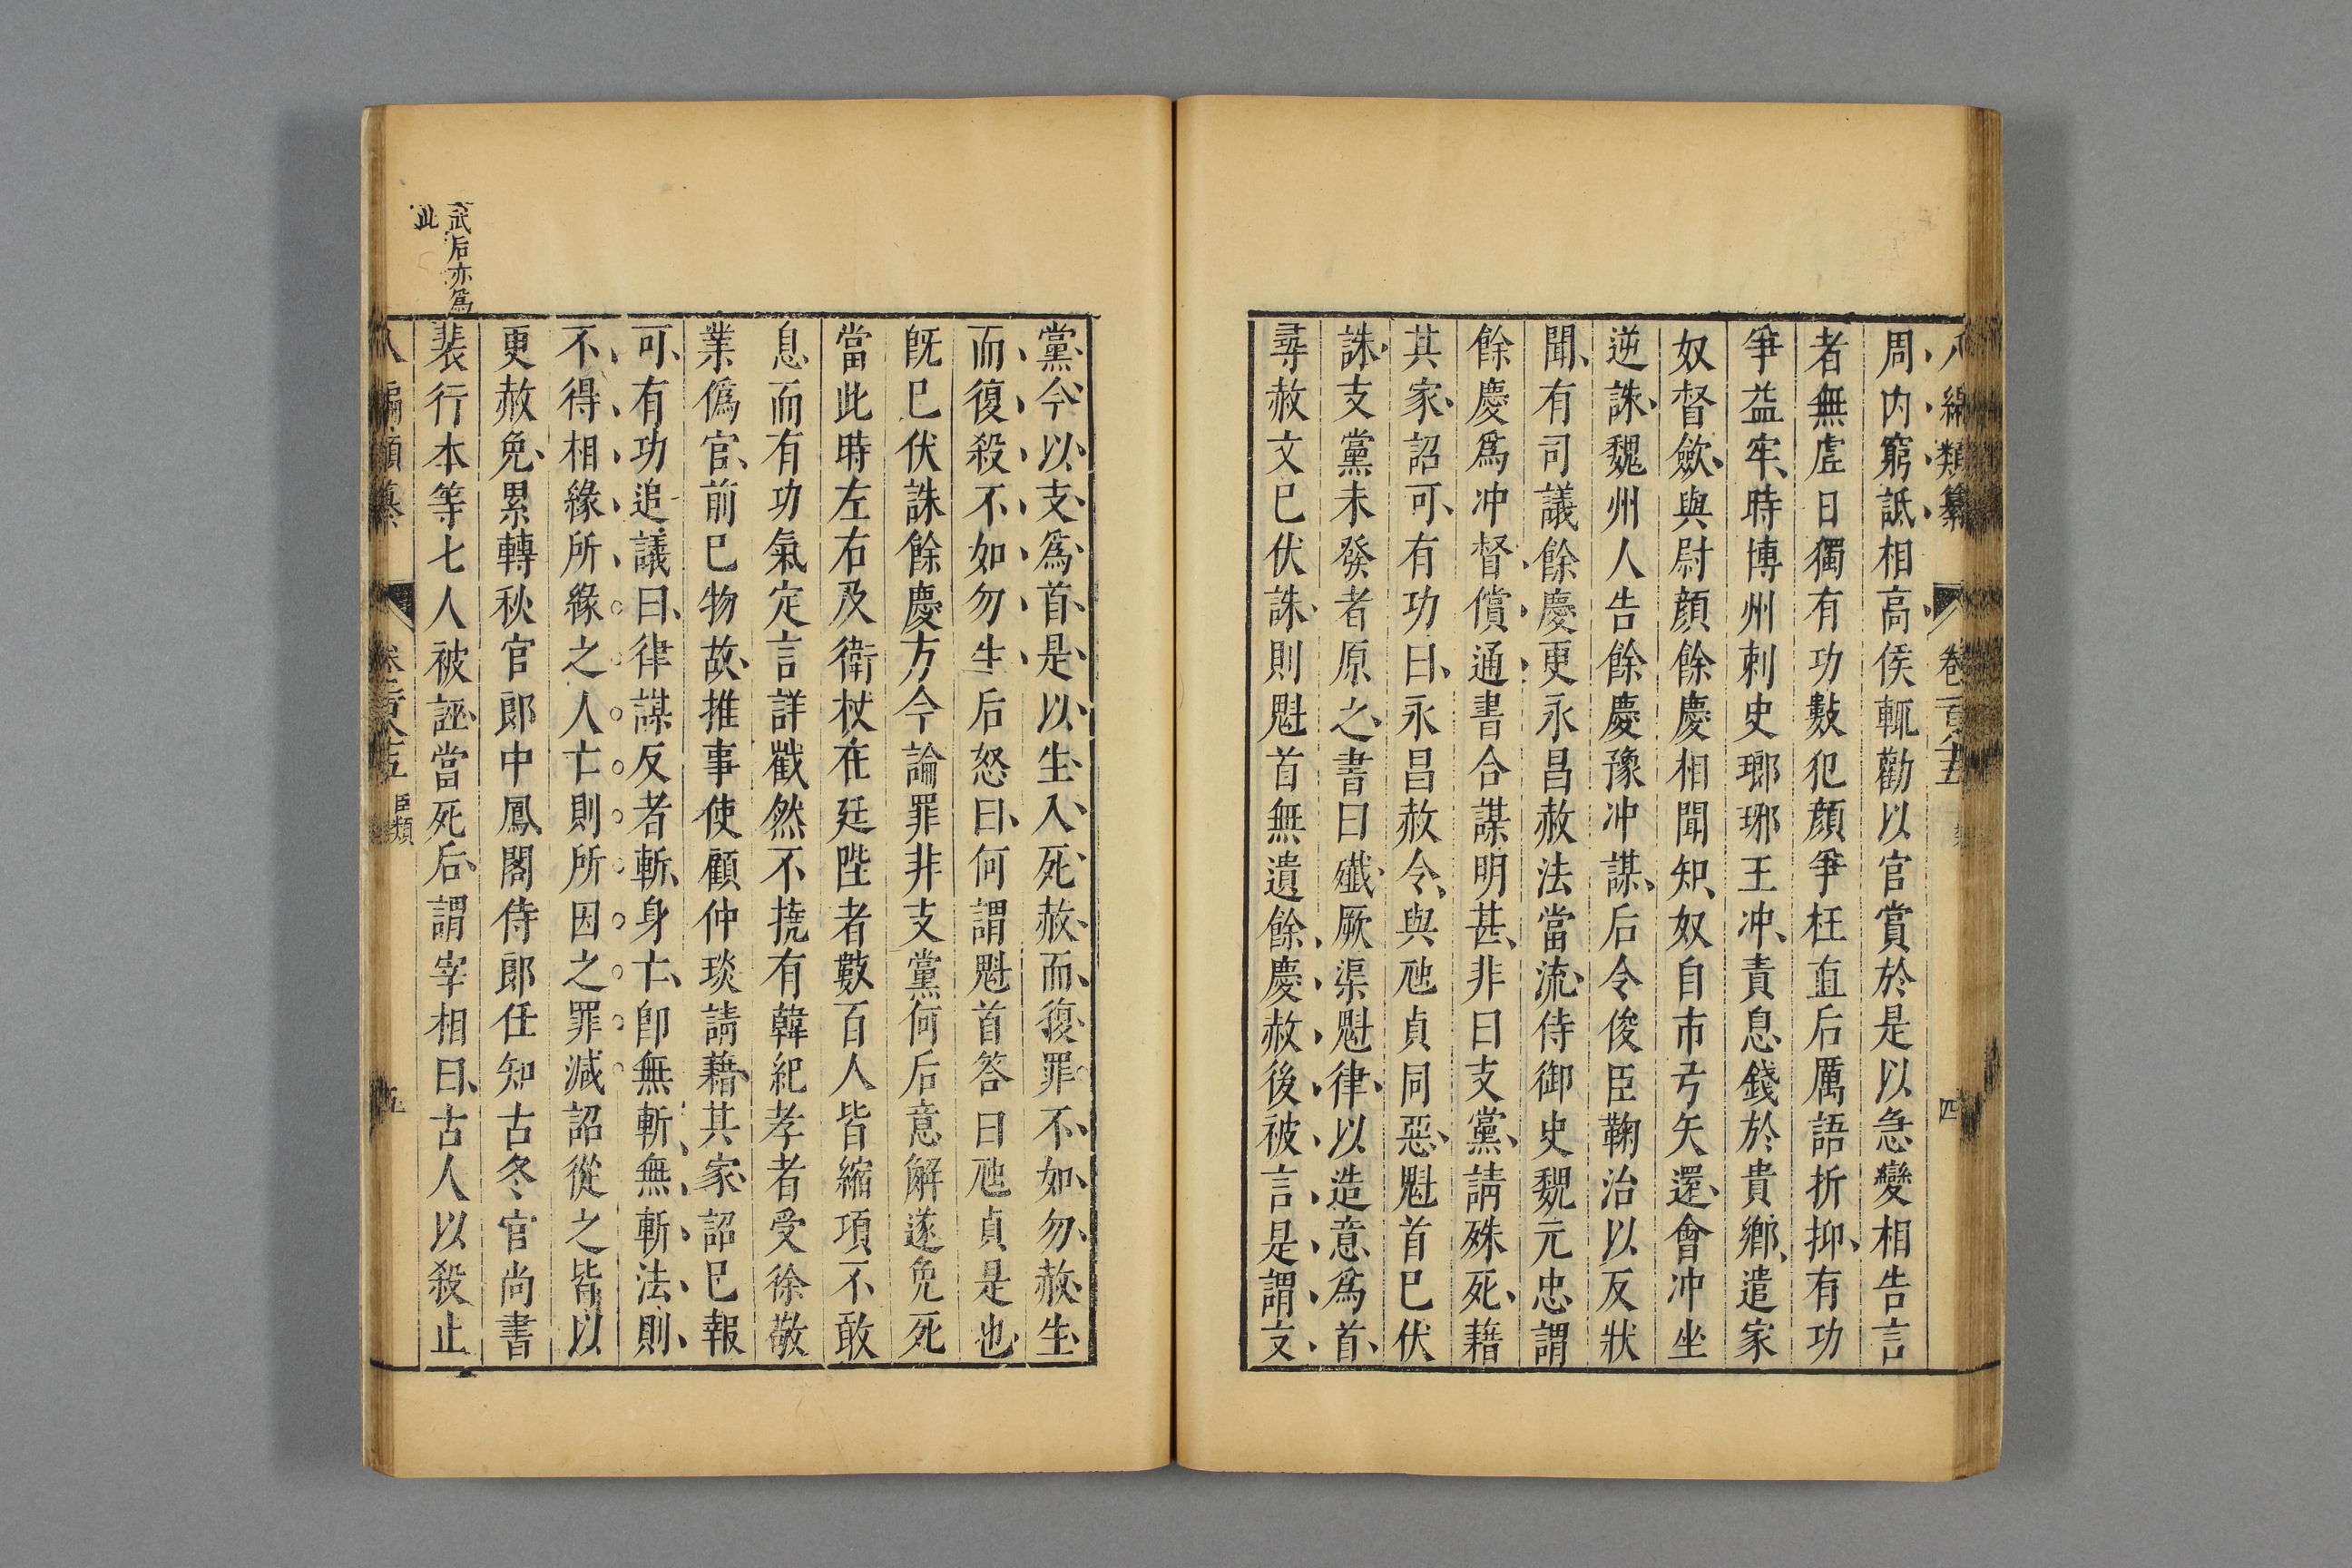 八編類纂 卷一百八十五 四
周内窮詆相高侯輒勸以官賞於是以急變相告言
者無虗日獨有功數犯顏爭枉直后厲語折抑有功
爭益牢時博州刺史瑯琊王冲責息錢於貴鄉遣家
奴督斂與尉顏餘慶相聞知奴自市弓矢還會冲坐
逆誅魏州人告餘慶豫冲謀后令俊臣鞫治以反狀
聞有司議餘慶更永昌赦法當流侍御史魏元忠謂
餘慶爲冲督償通書合謀明甚非曰支黨請殊死藉
其家詔可有功曰永昌赦令與虺貞同惡魁首已伏
誅支黨未發者原之書曰殲厥渠魁律以造意爲首
尋赦文已伏誅則魁首無遺餘慶赦後被言是謂支
黨今以支爲首是以生入死赦而復罪不如勿赦生
而復殺不如勿生后怒曰何謂魁首答曰虺貞是也
旣已伏誅餘慶方今論罪非支黨何后意解遂免死
當此時左右及衛杖在廷陛者數百人皆縮項不敢
息而有功氣定言詳截然不撓有韓紀孝者受徐敬
業僞官前已物故推事使顧仲琰請藉其家詔已報
可有功追議曰律謀反者斬身亡卽無斬無斬法則
不得相緣所緣之人亡則所因之罪減詔從之皆以
更赦免累轉秋官郎中鳳閣侍郎任知古冬官尚書
裴行本等七人被誣當死后謂宰相曰古人以殺止
武后亦爲
此
八編類纂 卷一百八十五 臣類 五